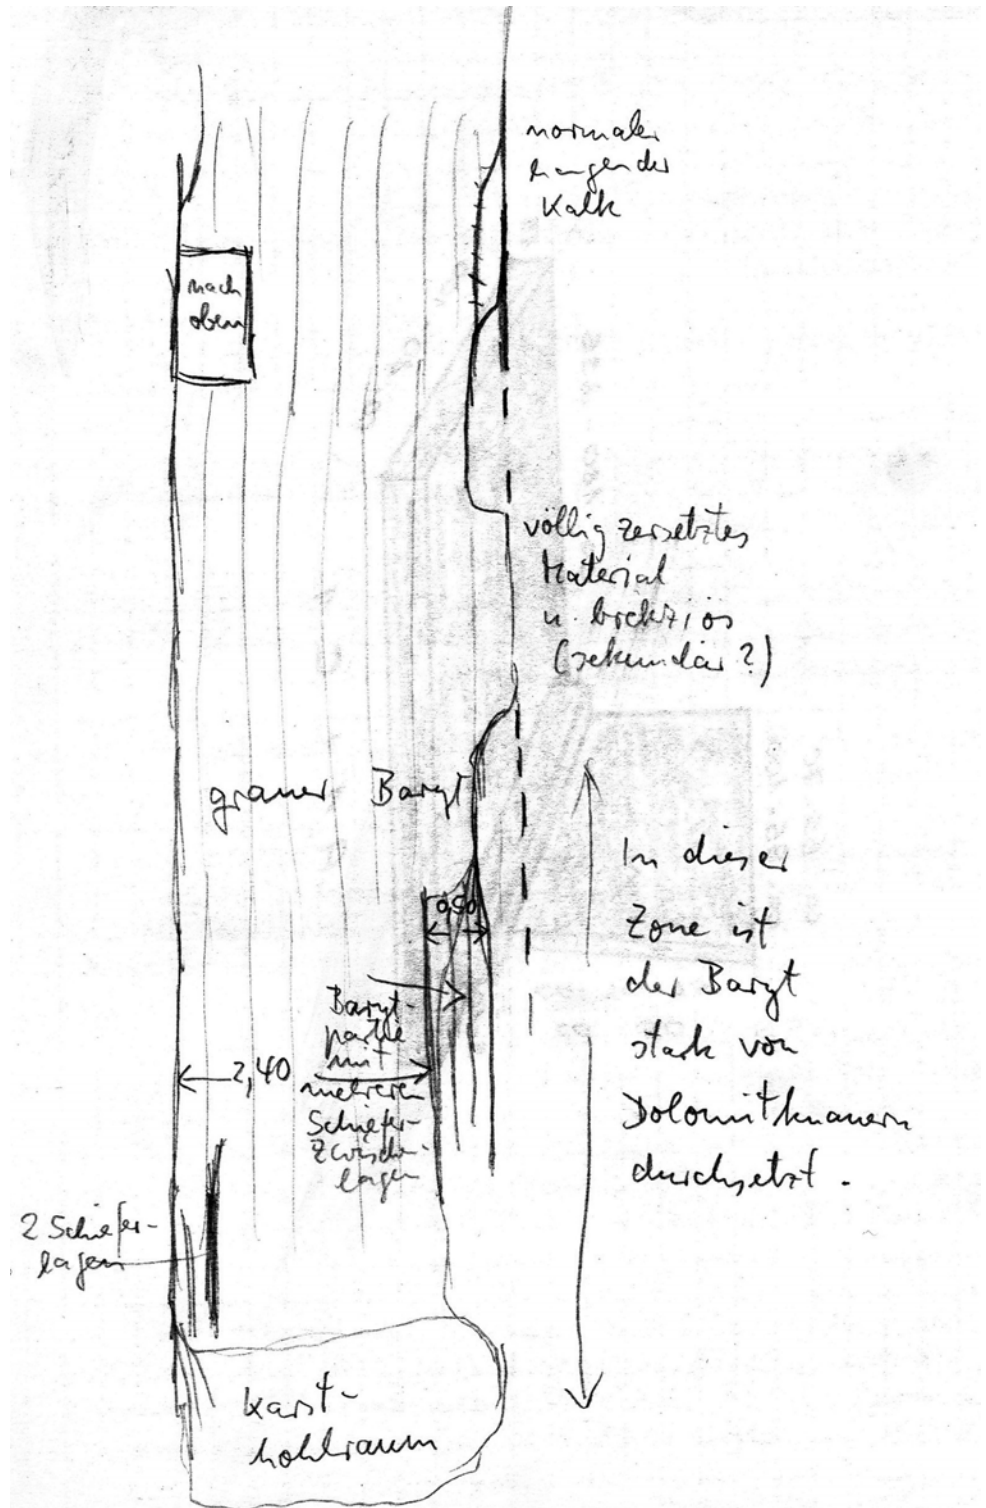 normaler
hangender
Kalk
nach
oben
völlig zersetztes
Material
u. brekziös
(sekundär?)
grauer Baryt
0,50
In dieser
Zone ist
der Baryt
stark von
Dolomitknauern
durchsetzt.
Baryt-
partie
mit
mehreren
Schiefer-
Zwischen-
lagen
2,40
2 Schiefer-
lagen
Karst-
hohlraum